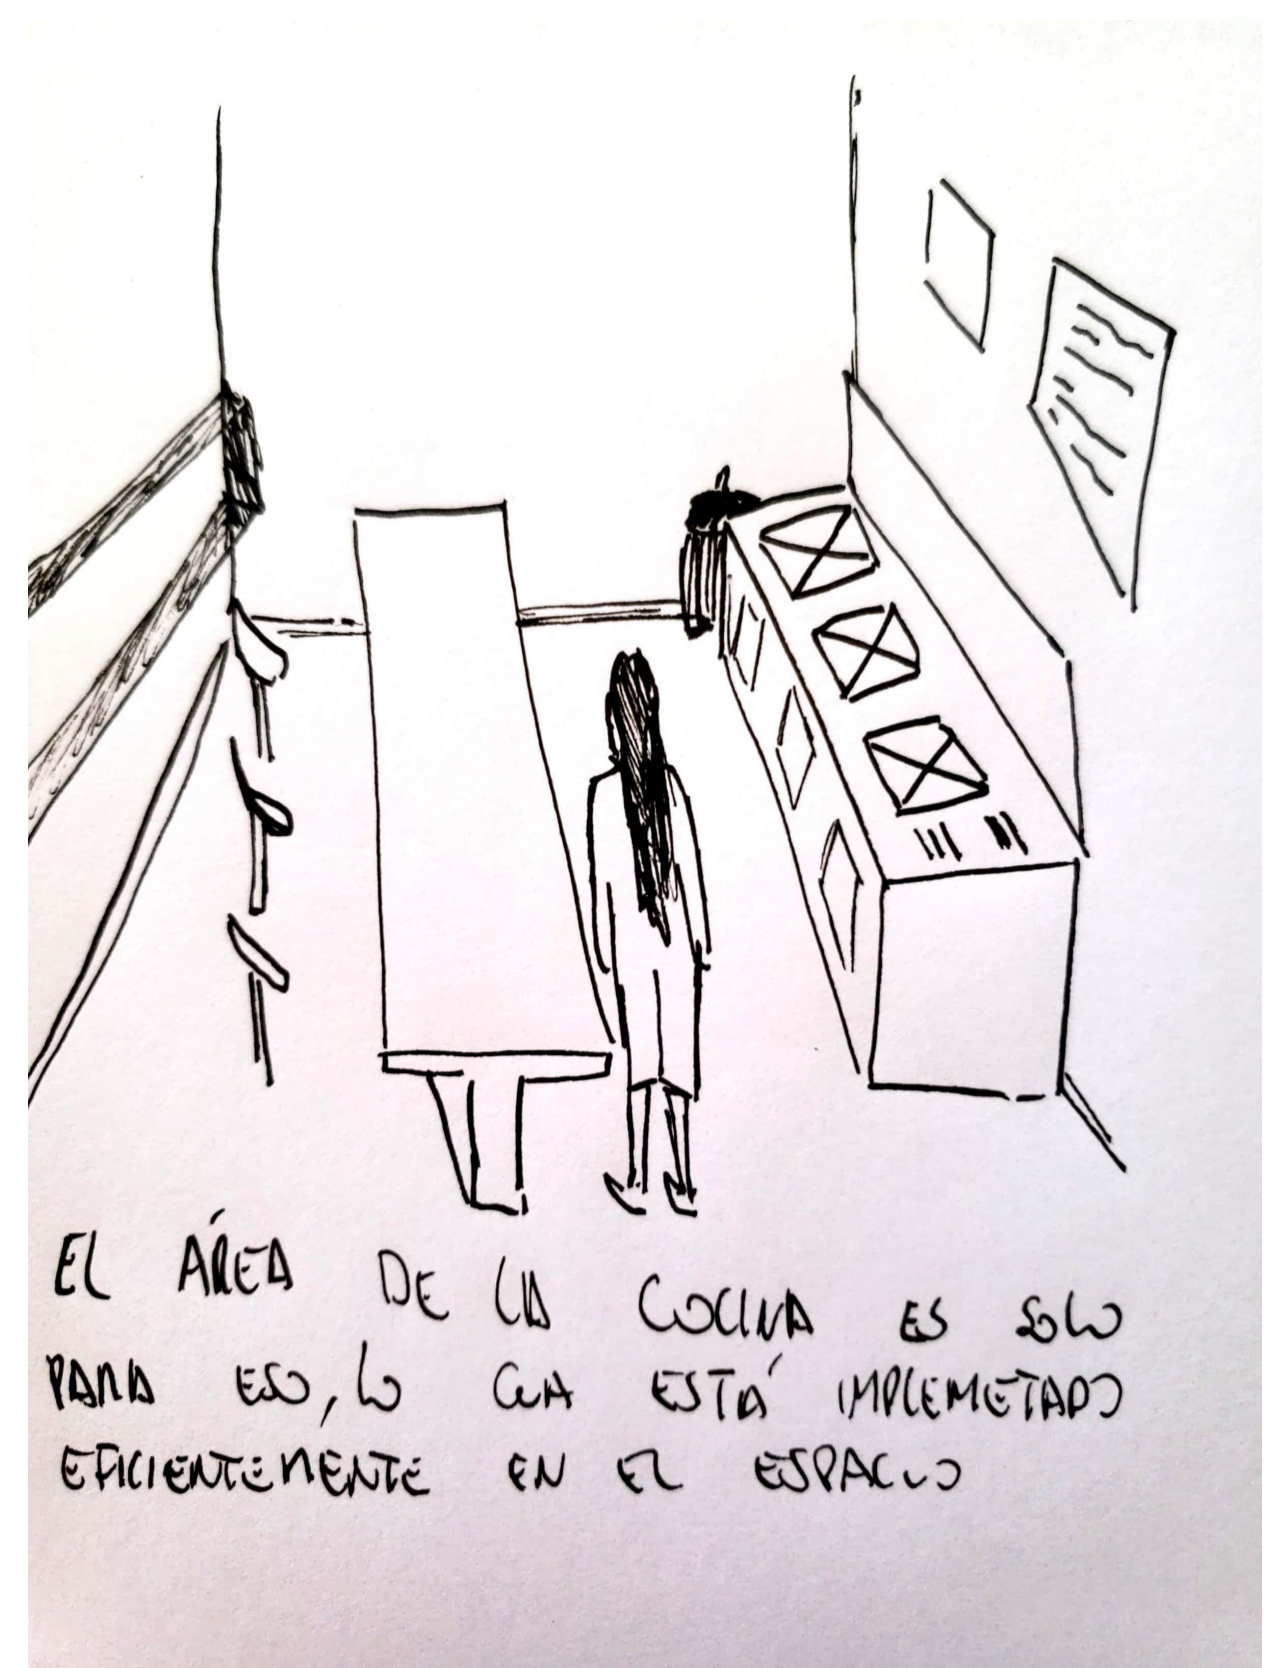 EL ÁREA DE LA COCINA ES SOLO
PARA ESO, LO CUA ESTÁ IMPLEMETADO
EFICIENTEMENTE EN EL ESPACIO